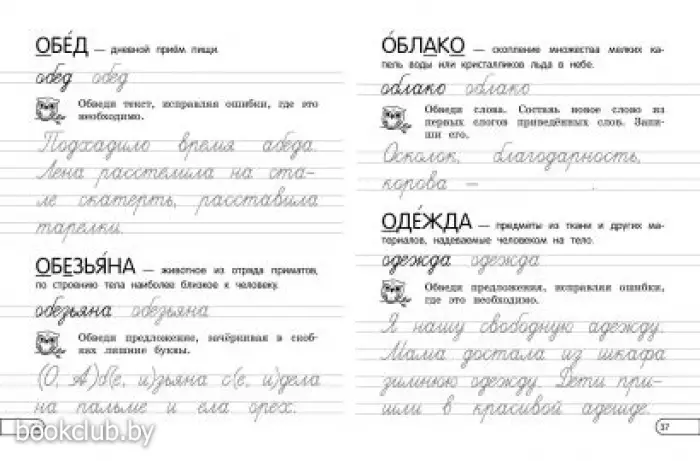 ОБЕ́Д — дневной приём пищи.
обед обед
Обведи текст, исправляя ошибки, где это
необходимо.
Подхадило время абеда.
Лена расстелила на сто-
ле скатерть, расставила
тарелки.
ОБЕЗЬЯ́НА — животное из отряда приматов,
по строению тела наиболее близкое к человеку.
обезьяна обезьяна
Обведи предложение, зачёркивая в скоб-
ках лишние буквы.
(О, А)б(е, и)зьяна с(е, и)дела
на пальме и ела орех.
О́БЛАКО — скопление множества мелких ка-
пель воды или кристалликов льда в небе.
облако облако
Обведи слова. Составь новое слово из
первых слогов приведённых слов. Запи-
ши его.
Осколок, благодарность,
корова —
ОДЕ́ЖДА — предметы из ткани и других ма-
териалов, надеваемые человеком на тело.
одежда одежда
Обведи предложения, исправляя ошибки,
где это необходимо.
Я нашу свободную адежду.
Мама достала из шкафа
зимнюю одежду. Дети при-
шли в красивой адешде.
37
bookclub.by